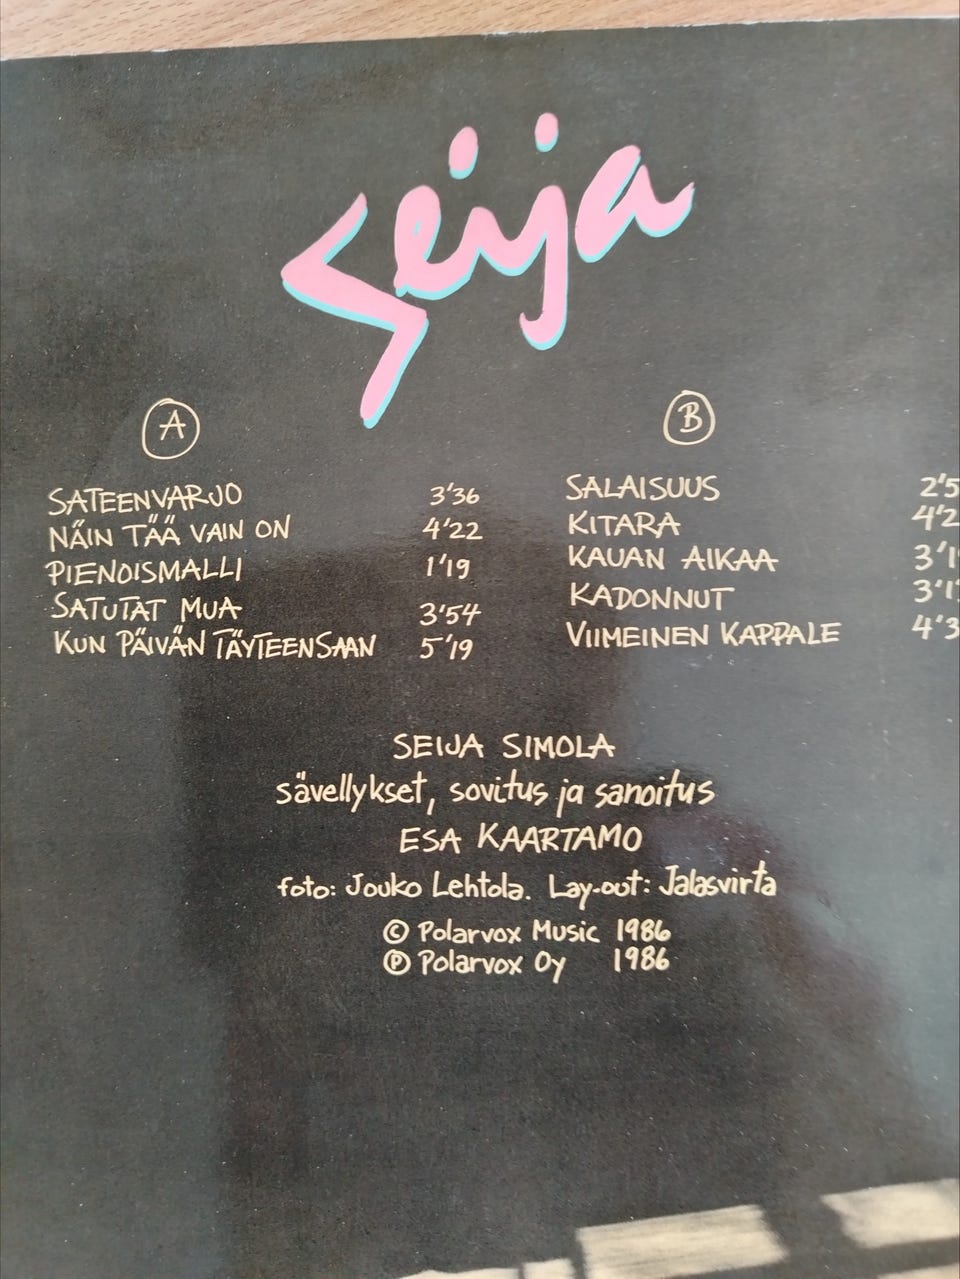 Seija
A
SATEENVARJO 3'36
NÄIN TÄÄ VAIN ON 4'22
PIENOISMALLI 1'19
SATUTAT MUA 3'54
KUN PÄIVÄN TÄYTEENSAAN 5'19
B
SALAISUUS
KITARA
KAUAN AIKAA
KADONNUT
VIIMEINEN KAPPALE
SEIJA SIMOLA
sävellykset, sovitus ja sanoitus
ESA KAARTAMO
foto: Jouko Lehtola. Lay-out: Jalasvirta
© Polarvox Music 1986
℗ Polarvox Oy 1986